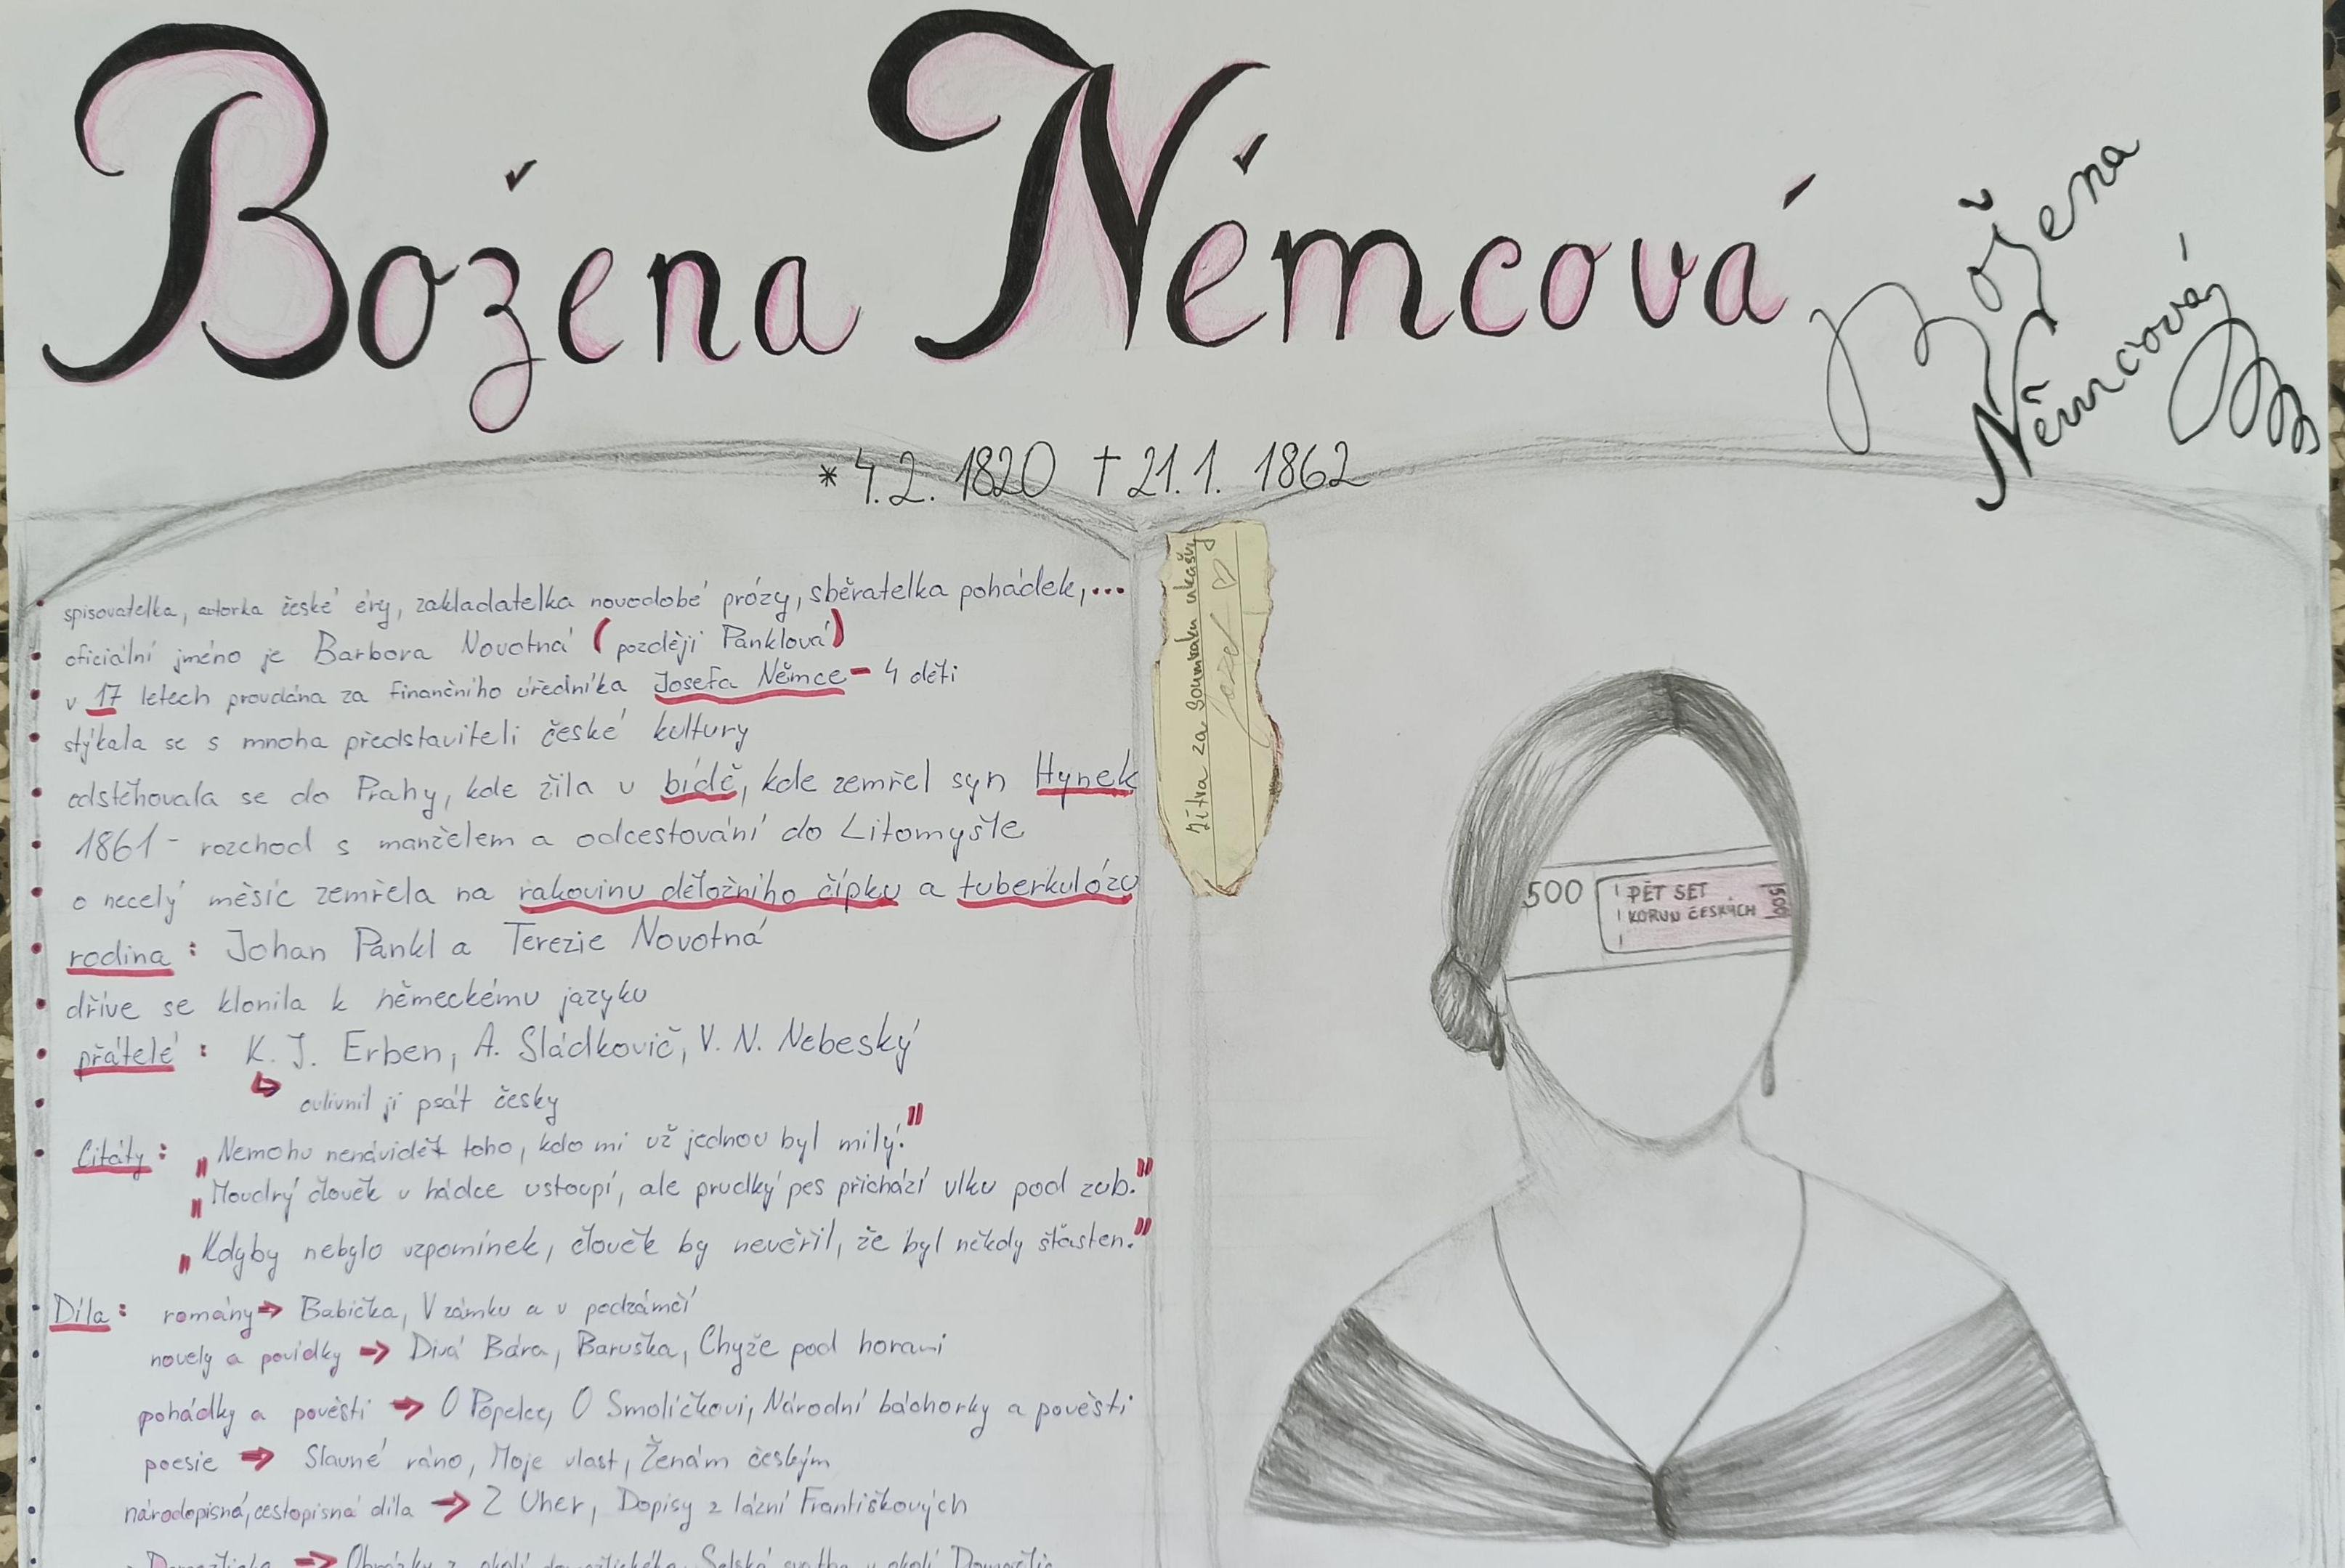 Božena Němcová
Božena
Němcová
* 4. 2. 1820 † 21. 1. 1862
spisovatelka, autorka české éry, zakladatelka novodobé prózy, sběratelka pohádek,...
oficiální jméno je Barbora Novotná (později Panklová)
v 17 letech provdána za finančního úředníka Josefa Němce - 4 děti
stýkala se s mnoha představiteli české kultury
odstěhovala se do Prahy, kde žila v bídě, kde zemřel syn Hynek
1861 - rozchod s manželem a odcestování do Litomyšle
o necelý měsíc zemřela na rakovinu děložního čípku a tuberkulózu
rodina: Johan Pankl a Terezie Novotná
dříve se klonila k německému jazyku
přátelé: K. J. Erben, A. Sládkovič, V. N. Nebeský
ovlivnil ji psát česky
Citáty: „Nemohu nenávidět toho, kdo mi už jednou byl milý."
„Moudrý člověk v hádce ustoupí, ale prudký pes přichází vlku pod zub."
„Kdyby nebylo vzpomínek, člověk by nevěřil, že byl někdy šťasten."
Díla: romány → Babička, V zámku a v podzámčí
novely a povídky → Divá Bára, Baruška, Chyže pod horami
pohádky a pověsti → O Popelce, O Smolíčkovi, Národní báchorky a pověsti
poesie → Slavné ráno, Moje vlast, Ženám českým
národopisná, cestopisná díla → Z Uher, Dopisy z lázní Františkových
→ Obrázky z okolí domažlického, Selská svatba v okolí
Jitra za
500
PĚT SET
KORUN ČESKÝCH
500